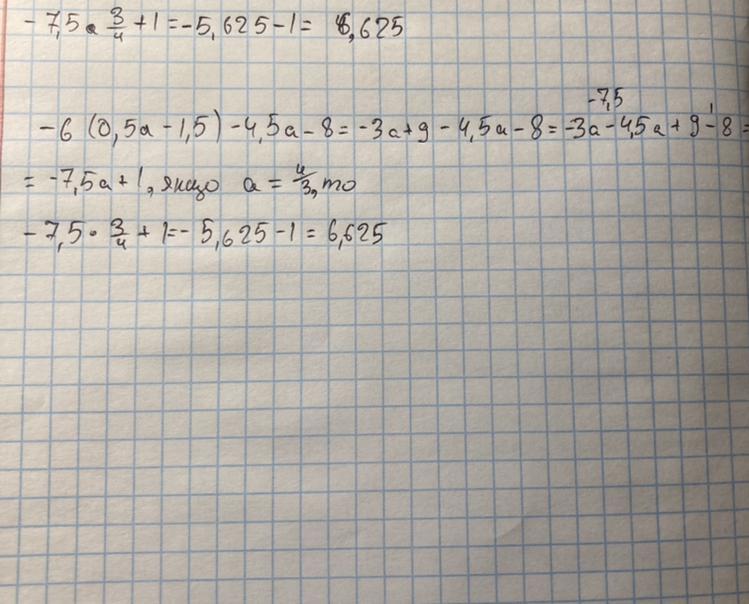 -7,5 · 3/4 + 1 = -5,625 - 1 = 6,625
-7,5 1
-6 (0,5a - 1,5) - 4,5a - 8 = -3a + 9 - 4,5a - 8 = -3a - 4,5a + 9 - 8 =
= -7,5a + 1, якщо a = 4/3, то
-7,5 · 3/4 + 1 = -5,625 - 1 = 6,625